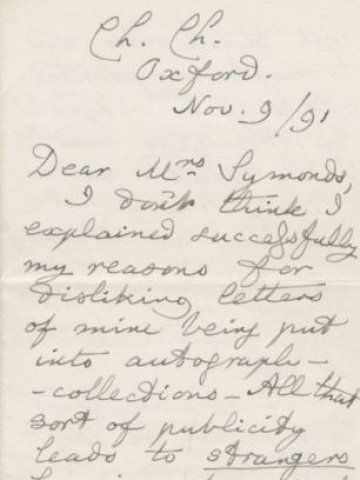 Ch. Ch.
Oxford.
Nov. 9/91
Dear Mrs Symonds,
I don't think I
explained successfully
my reasons for
disliking letters
of mine being put
into autograph-
-collections- All that
sort of publicity
leads to strangers